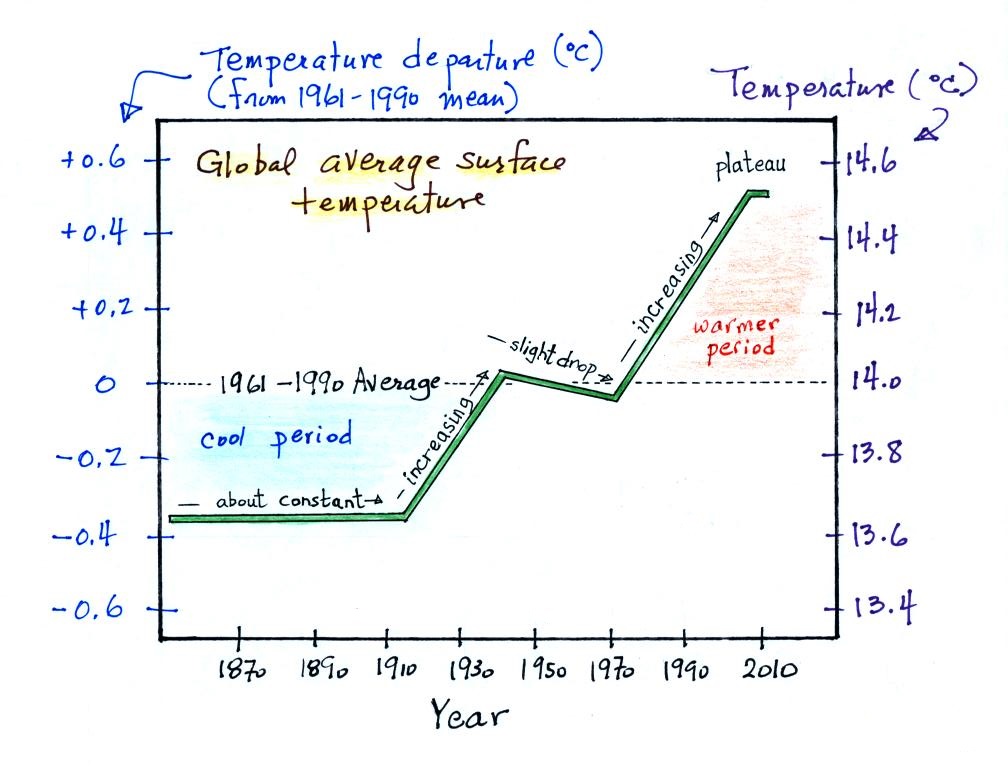 Temperature departure (°C)
(from 1961-1990 mean)
Temperature (°C)
Global average surface
temperature
plateau
+0.6
+0.4
+0.2
0
-0.2
-0.4
-0.6
14.6
14.4
14.2
14.0
13.8
13.6
13.4
increasing
warmer
period
slight drop
1961-1990 Average
increasing
cool period
about constant
1870 1890 1910 1930 1950 1970 1990 2010
Year